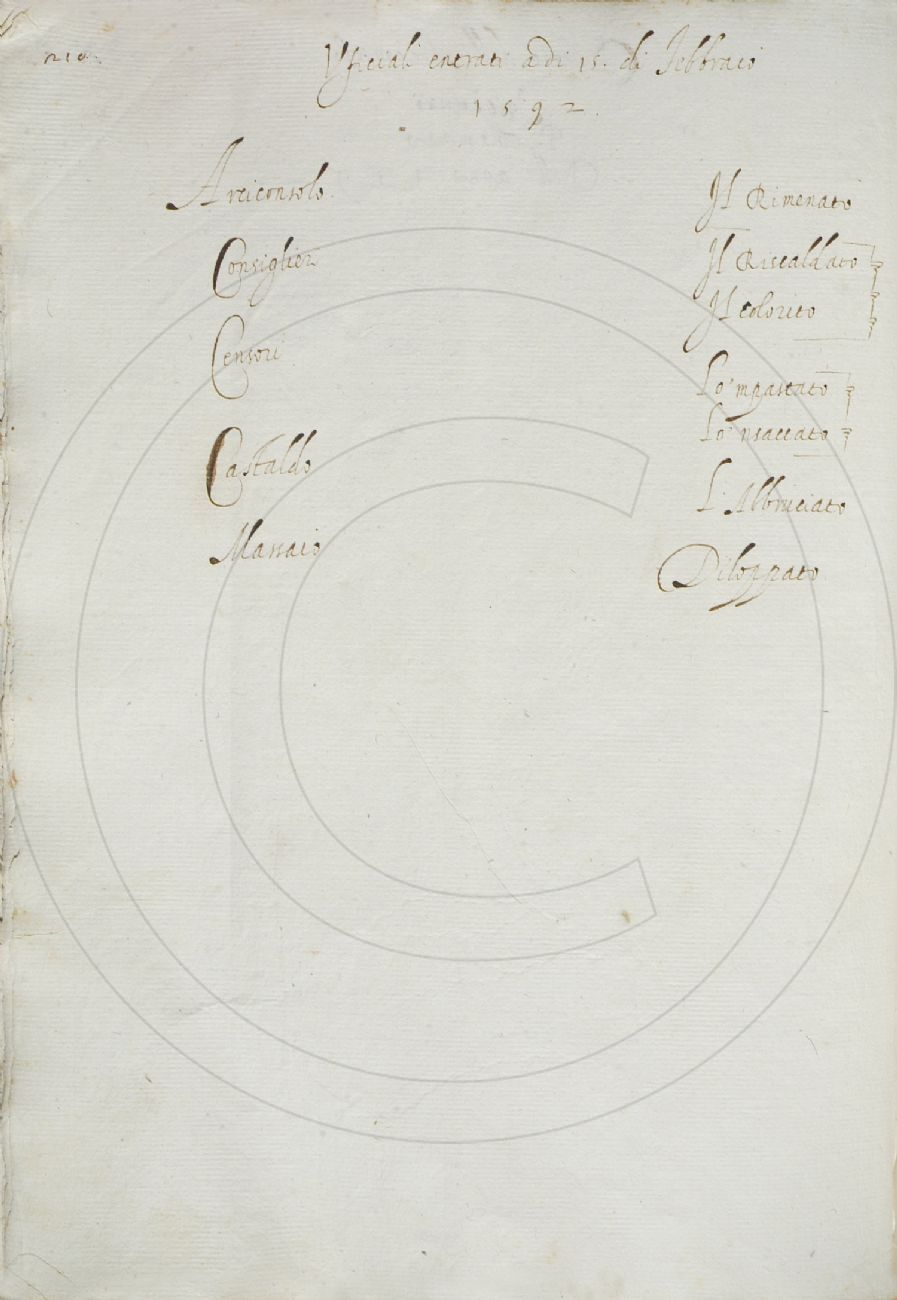 n 10.
Vficiali entrati adi 15. di Febbraio
1592.
Arciconsolo. Il Rimenato
Consiglieri Il Riscaldato
Il colorito
Censori Lo 'mpastato
Lo 'nsaccato
Castaldo L'Abbruciato
Massaio Diloppato